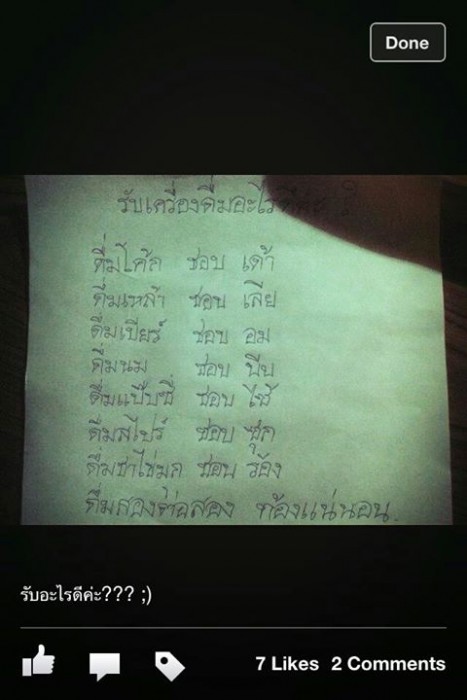 Done
รับเครื่องดื่มอะไรดีค่ะ ?
ดื่มโค้ก ชอบ เด้า
ดื่มเหล้า ชอบ เลีย
ดื่มเบียร์ ชอบ อม
ดื่มนม ชอบ บีบ
ดื่มแป๊บซี่ ชอบ ไซ้
ดื่มสไปร์ ชอบ ซุก
ดื่มชาไข่มุก ชอบ ร้อง
ดื่มสองต่อสอง ท้องแน่นอน.
รับอะไรดีค่ะ??? ;)
7 Likes 2 Comments